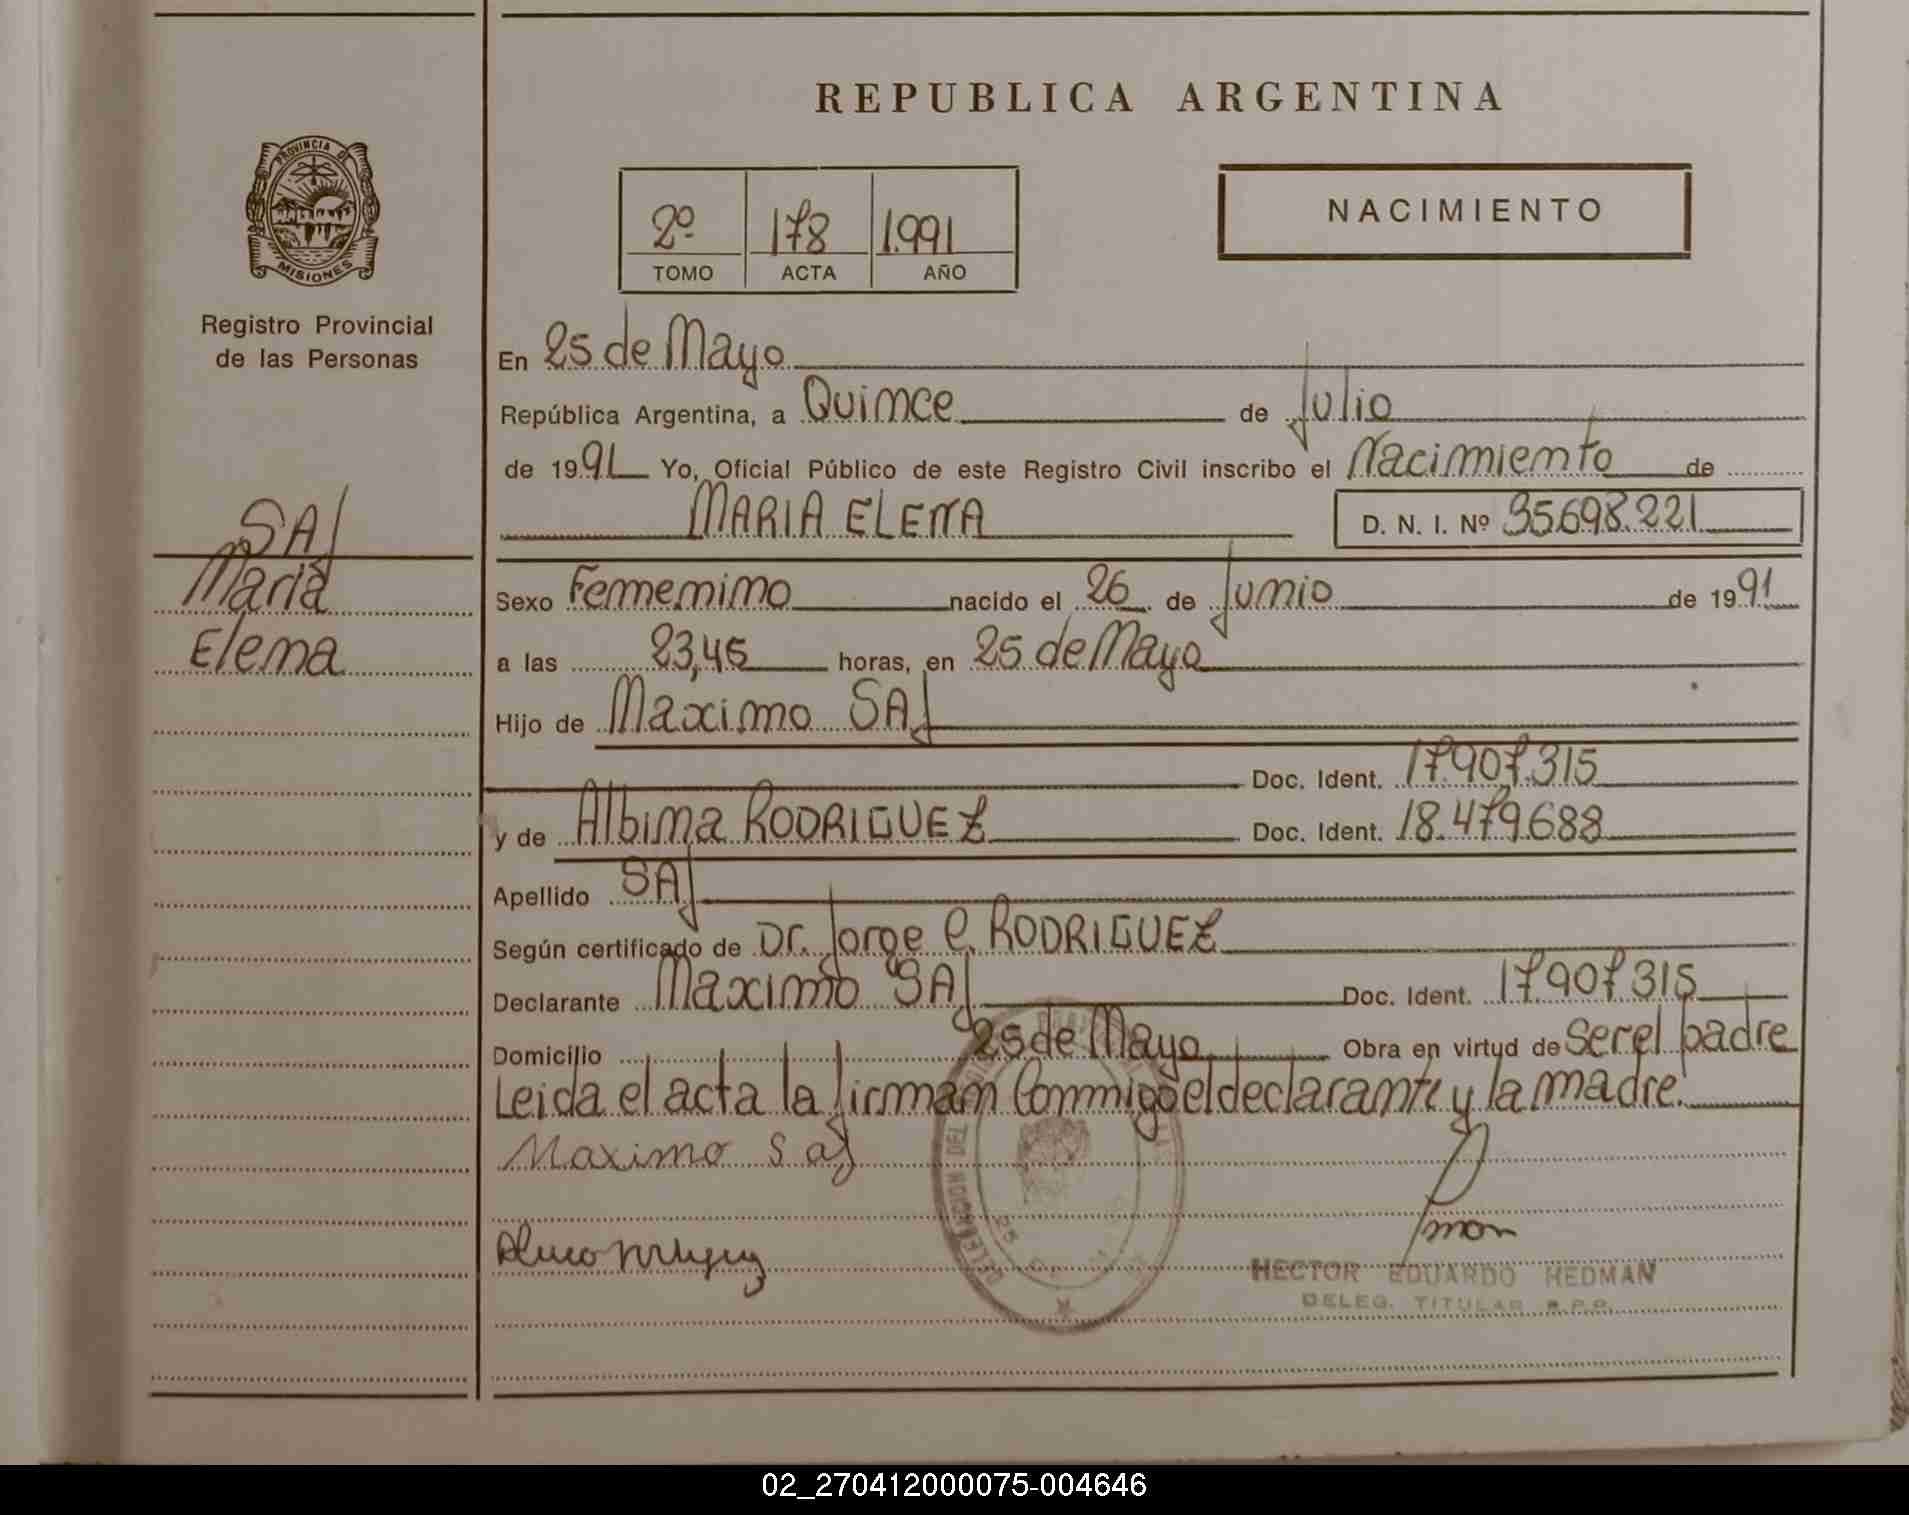 REPUBLICA ARGENTINA
PROVINCIA DE MISIONES
Registro Provincial
de las Personas
2º 178 1.991
TOMO ACTA AÑO
NACIMIENTO
SAJ
Maria
Elena
En 25 de Mayo
República Argentina, a Quince de Julio
de 1991 Yo, Oficial Público de este Registro Civil inscribo el Nacimiento de
MARIA ELENA D. N. I. Nº 35.698.221
Sexo Femenino nacido el 26 de Junio de 1991
a las 23,45 horas, en 25 de Mayo
Hijo de Maximo SAJ
Doc. Ident. 17.907.315
y de Albina RODRIGUEZ Doc. Ident. 18.479.688
Apellido SAJ
Según certificado de Dr. Jorge C. RODRIGUEZ
Declarante Maximo SAJ Doc. Ident. 17.907.315
Domicilio 25 de Mayo Obra en virtud de Ser el padre
Leida el acta la firman Conmigo el declarante y la madre.
Maximo Saj
DELEGACION DEL
25 DE MAYO
HECTOR EDUARDO HEDMAN
DELEG. TITULAR R.P.P.
02_270412000075-004646